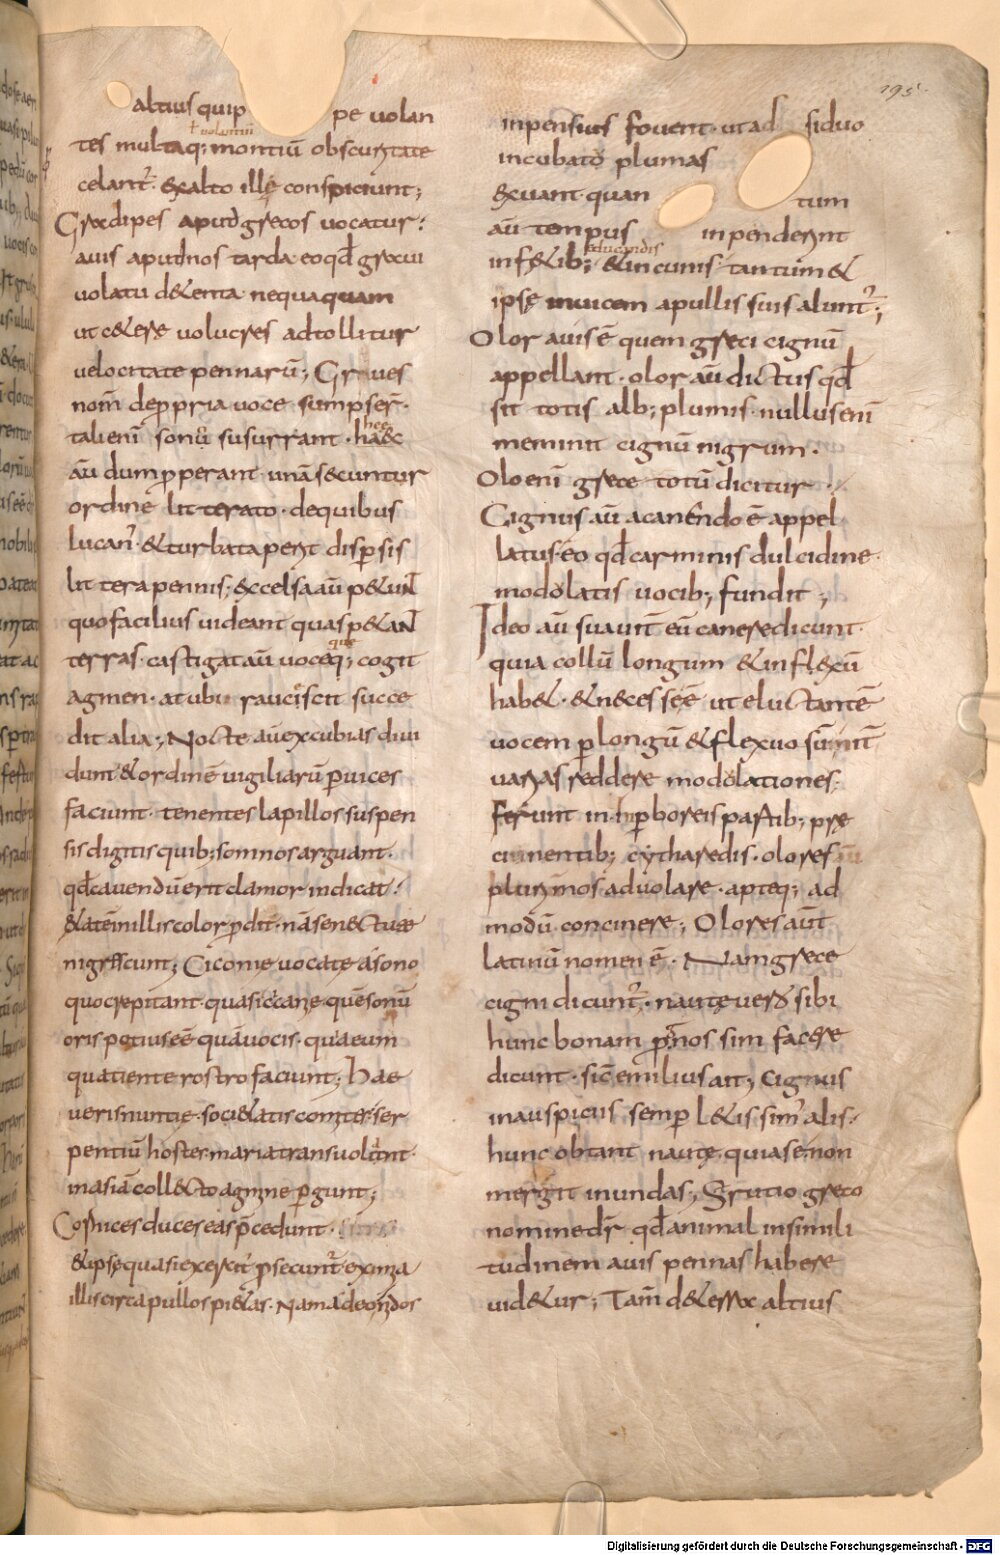 195
altius quip pe uolan
ł uoluntur
tes multaq; montiū obscuritate
celant̄. &xalto ille conspiciunt;
Graedipes apud grecos uocatur;
auis apud nos tarda. eo qđ graui
uolatu d&enta nequaquam
ut c&ere uolucres adtollitur
uelocitate pennarū; Grues
nom̄ de ppria uoce sumpser̄.
tali enī sonū susurrant. hae
hec
aū dum pperant unā secuntur
ordinē litterato. de quibus
lucan̄. &turbata perit dispersis
littera pennis; &xcelsa aū p&unt
quo facilius uideant quas p&ant
terras. castigat aū uoceq; cogit
que
agmen. at ubi rauciscit succe
dit alia; Nocte aū excubias diui
dunt &ordinē uigiliarū p uices
faciunt. tenentes lapillos suspen
sis digitis quib; somnos arguant.
qđ cauendū erit clamor indicat;
&atē in illis color pdit. nā senectute
nigrescunt; Ciconie uocate a sono
quo crepitant. quasi cicane. quē sonū
oris potius eē quā uocis. quia eum
quatiente rostro faciunt; Hae
ueris nuntie. soci&atis comites. ser
pentiū hostes. maria transuolant.
in asiā coll&cto agmine pgunt;
Cornices duces eas pcedunt.
&ipse quasi exercit' psecunt̄. eximia
illis circa pullos pi&as. Nam adeo nidos
inpensius fouent. ut ad siduo
incubatō plumas
&xuant. quan tum
aū tempus inpenderint
educandis
inf&ib; &in cunis tantum &
ipse inuicem a pullis suis alunt̄;
Olor auis ē quem greci cignū
appellant. olor aū dictus qđ
sit totis alb; plumis. nullus enī
meminit cignū nigrum.
Olo enī grece totū dicitur.
Cignus aū a canendo ē appel
latus. eo qđ carminis dulcidine
modolatis uocib; fundit;
Ideo aū suauit̄ eū canere dicunt.
quia collū longum &infl&xū
hab&. &necesse ē ut eluctantē
uocem p longū &flexuosū it̄
uarias reddere modolationes;
Ferunt in hiperboreis partib; pre
cinentib; cytharedis. olores
plurimos aduolare. apteq; ad
modū concinere; Olores aūt
latinū nomen ē. Nam grece
cigni dicunt̄. naute uero sibi
hunc bonam pnos sim facere
dicunt. sic emilius ait; Cignus
in auspicus semp l&issim' alis.
hunc obtant naute. quia se non
mergit in undas; Strutio greco
nomine dr̄ qđ animal in simili
tudinem auis pennas habere
uid&ur; Tam̄ de terra altius
Digitalisierung gefördert durch die Deutsche Forschungsgemeinschaft - DFG